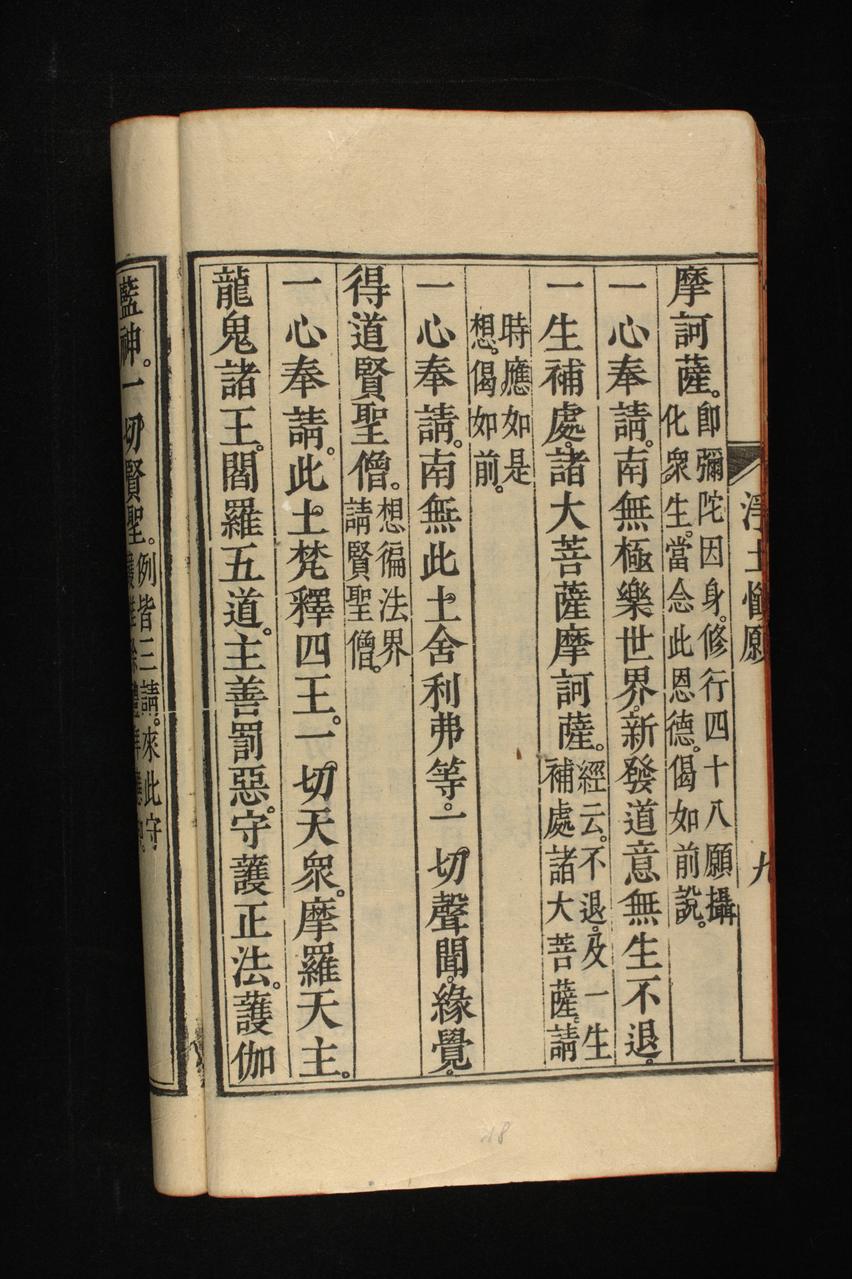 淨土懺願
九
摩訶薩。即彌陀因身。修行四十八願攝
化衆生。當念此恩德。偈如前說。
一心奉請。南無極樂世界。新發道意無生不退。
一生補處。諸大菩薩摩訶薩。經云。不退。及一生
補處諸大菩薩。請
時應如是
想。偈如前。
一心奉請。南無此土舍利弗等。一切聲聞。緣覺。
得道賢聖僧。想徧法界
請賢聖僧。
一心奉請。此土梵釋四王。一切天衆。摩羅天主。
龍鬼諸王。閻羅五道。主善罰惡。守護正法。護伽
藍神。一切賢聖。例皆三請。來此守
18